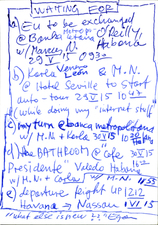 WAITING FOR
a) EU to be exchanged
@ Banka Metropolitana O'Reilly
w/ Marcus V. Habana
29 V 15 093
b) Karla Ventura León & M.N.
@ Hotel Seville to start
auto-tour 29 V 15 10
while doing my "internet stuff"
c) my turn @ banca metropolitana
w/ M.N. & Karla 30 V 15
d) the BATHROOM @ "Cafe
Presidente" Vedado Habana
w/ M.N. & Carla
e) departure flight up 1212
Havana → Nassau 1 VI 15
"what else is new !?" Egon